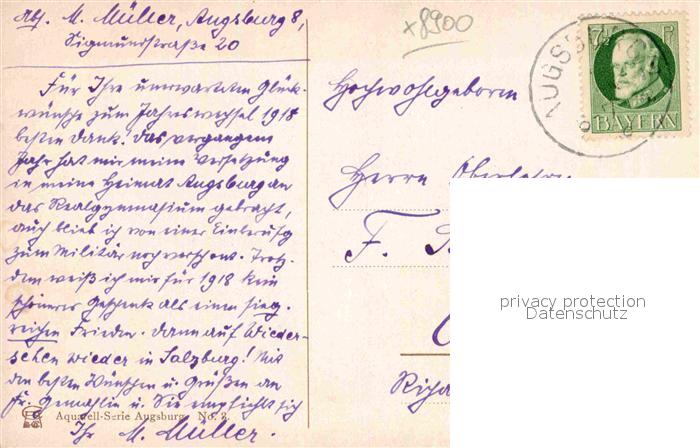 Abs. M. Müller, Augsburg 8,
Sigmundstraße 20
Für Ihre unerwarteten Glück-
wünsche zum Jahreswechsel 1918
besten Dank! Das vergangene
Jahr hat mir meine Versetzung
in meine Heimat Augsburg an
das Realgymnasium gebracht,
auch blieb ich von einer Einberufg
zum Militär noch verschont. Trotz-
dem weiß ich mir für 1918 kein
schöneres Geschenk als einen sieg-
reichen Frieden. Dann auf Wieder-
sehen wieder in Salzburg! Mit
den besten Wünschen u. Grüßen an
Fr. Gemahlin u. Sie empfiehlt sich
Ihr M. Müller.
Aquarell-Serie Augsburg No. 2.
x8900
Hochwohlgeboren
Herrn
F.
AUGSB
7½ Pf
BAYERN
privacy protection
Datenschutz